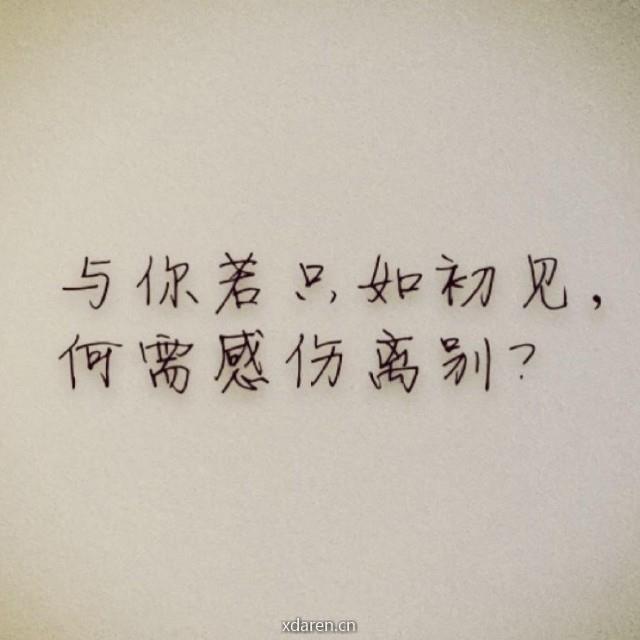 与你若只如初见，
何需感伤离别？
xdaren.cn